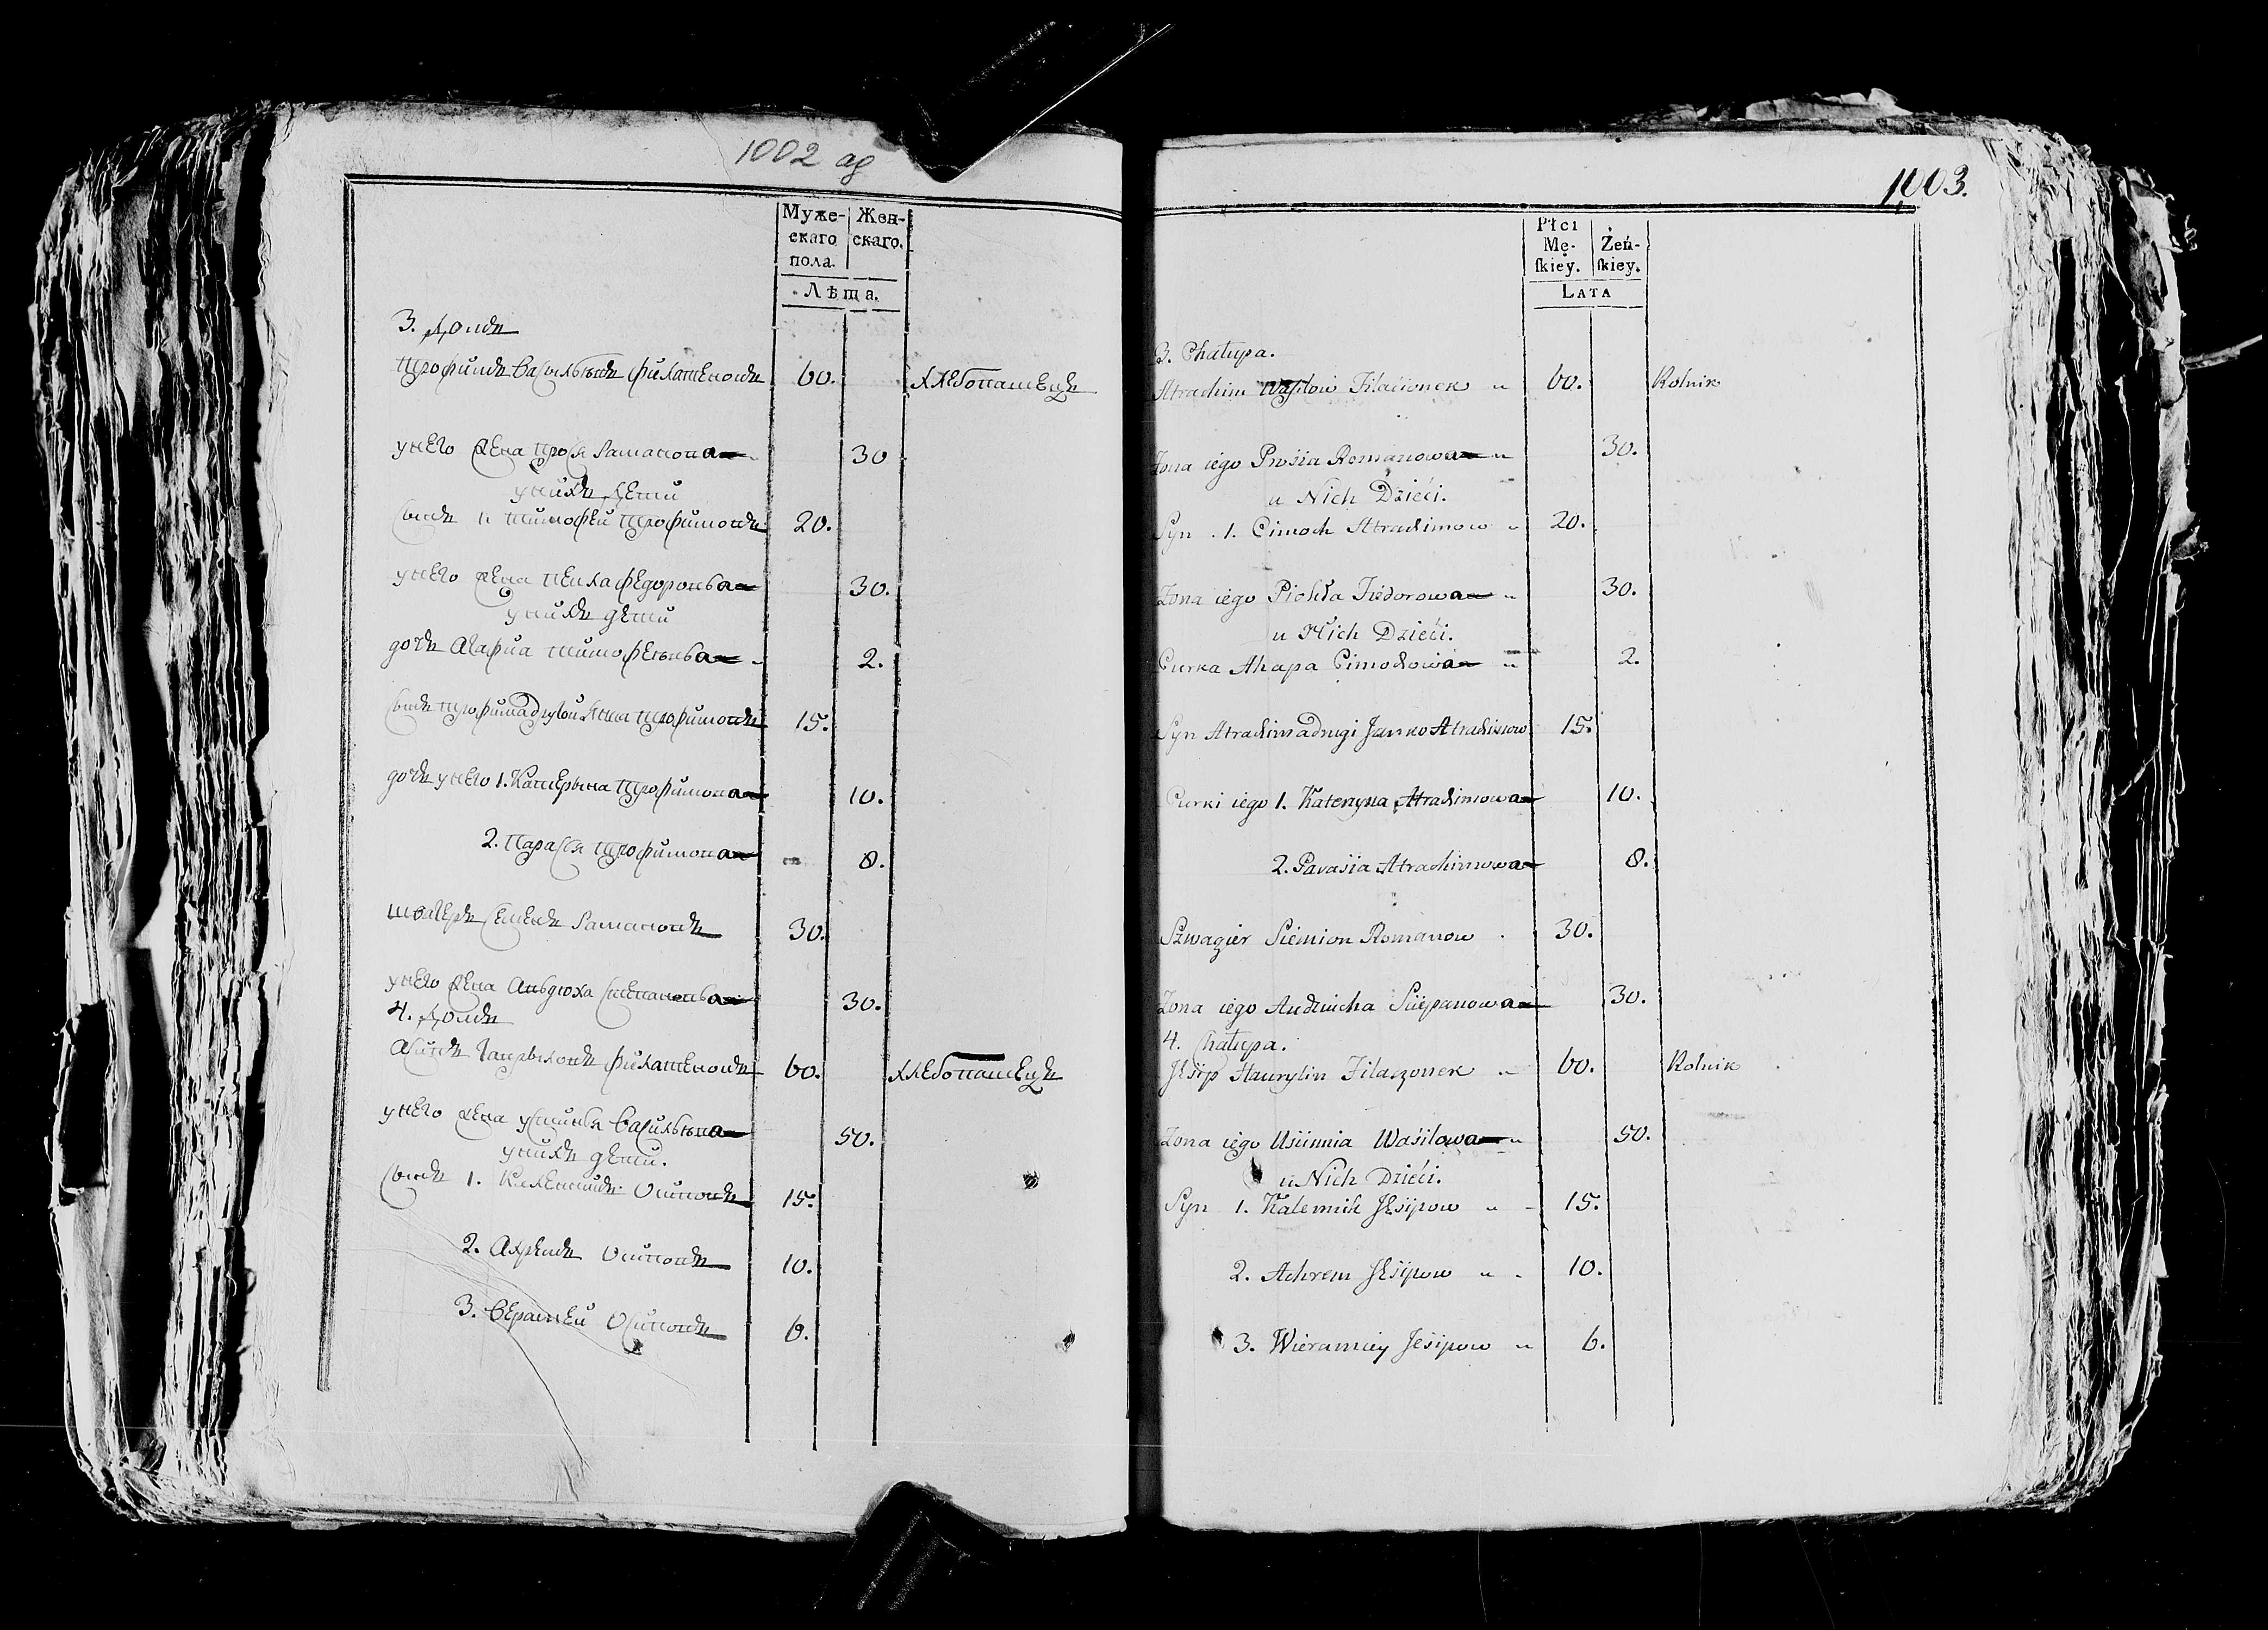 1002 об
Муже-
скаго
пола.
Жен-
скаго.
Лѣта.
3. Домъ
Трофимъ Васильевъ Филатенокъ 60. Хлебопашецъ
у него жена Прося Раманова 30
у нихъ дети
Сынъ 1. Тимофей Трофимовъ 20.
у него жена Текла Федорова 30.
у нихъ дети
дочь Агафия Тимофеева 2.
Сынъ Трофима другой Янка Трофимовъ 15.
дочь у него 1. Катерына Трофимова 10.
2. Парася Трофимова 8.
швагеръ Семенъ Рамановъ 30.
у него жена Авдюха Степанова 30.
4. Домъ
Гаврыловъ Филатенокъ 60. Хлебопашецъ
у него жена Устинья Васильева 50.
у нихъ дети.
Сынъ 1. Осиповъ 15.
2. Ахремъ Осиповъ 10.
3. Верамей Осиповъ 6.
1003.
Płci
Mę-
skiey.
Żeń-
skiey.
LATA
3. Chałupa.
Atrachim Wasilow Filacionek 60. Rolnik
Zona iego Prosia Romanowa 30.
u Nich Dzieći.
Syn 1. Cimoch Atrachimow 20.
Zona iego Fiedorowa 30.
u Nich Dzieći.
Curka Ahapa Cimochowa 2.
Syn Atrachima drugi Janko Atrachimow 15.
Curki iego 1. Kateryna Atrachimowa 10.
2. Parasia Atrachimowa 8.
Szwagier Siemion Romanow 30.
Zona iego Audziucha Sciepanowa 30.
4. Chałupa.
Jesip Haurylin Filaczonek 60. Rolnik
Zona iego Usćimia Wasilowa 50.
u Nich Dzieći.
Syn 1. Kalemik Jesipow 15.
2. Achrem Jesipow 10.
3. Wieramiey Jesipow 6.